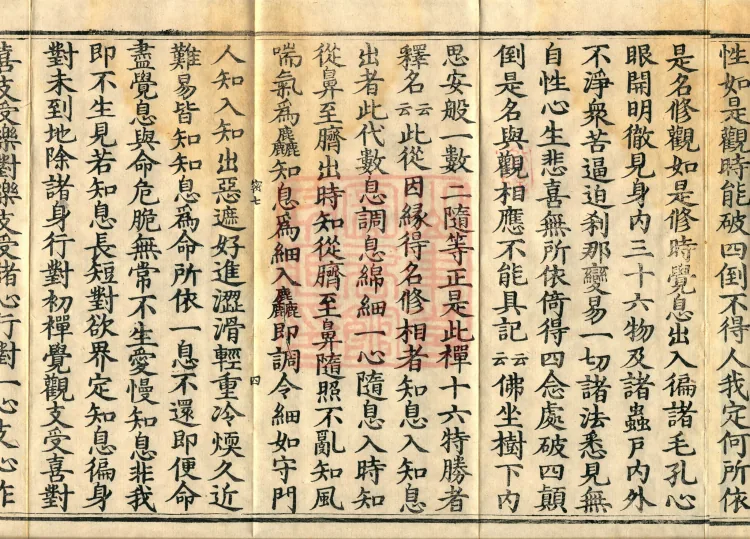 性如是觀時能破四倒不得人我定何所依
是名修觀如是修時覺息出入徧諸毛孔心
眼開明徹見身內三十六物及諸蟲戶內外
不淨衆苦逼迫刹那變易一切諸法悉見無
自性心生悲喜無所依倚得四念處破四顛
倒是名與觀相應不能具記云云佛坐樹下內
思安般一數二隨等正是此禪十六特勝者
釋名云云此從因緣得名修相者知息入知息
出者此代數息調息綿細一心隨息入時知
從鼻至臍出時知從臍至鼻隨照不亂知風
喘氣爲麤知息爲細入麤即調令細如守門
宻七 四
人知入知出惡遮好進澀滑輕重冷煗久近
難易皆知知息爲命所依一息不還即便命
盡覺息與命危脆無常不生愛慢知息非我
即不生見若知息長短對欲界定知息徧身
對未到地除諸身行對初禪覺觀支受喜對
喜支受樂對樂支受諸心行對一心支心作